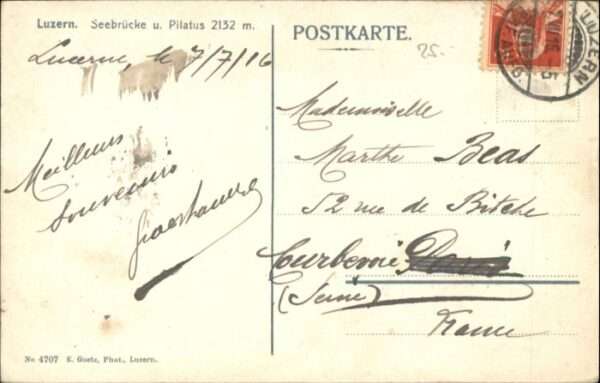 Luzern. Seebrücke u. Pilatus 2132 m.
POSTKARTE.
25.-
Lucerne, le 7/7/16
Meilleurs
Souvenirs
Mademoiselle
Marthe Beas
52 rue de Bitche
Courbevoie Paris
(Seine)
France
LUZERN
No 4707 E. Goetz, Phot., Luzern.